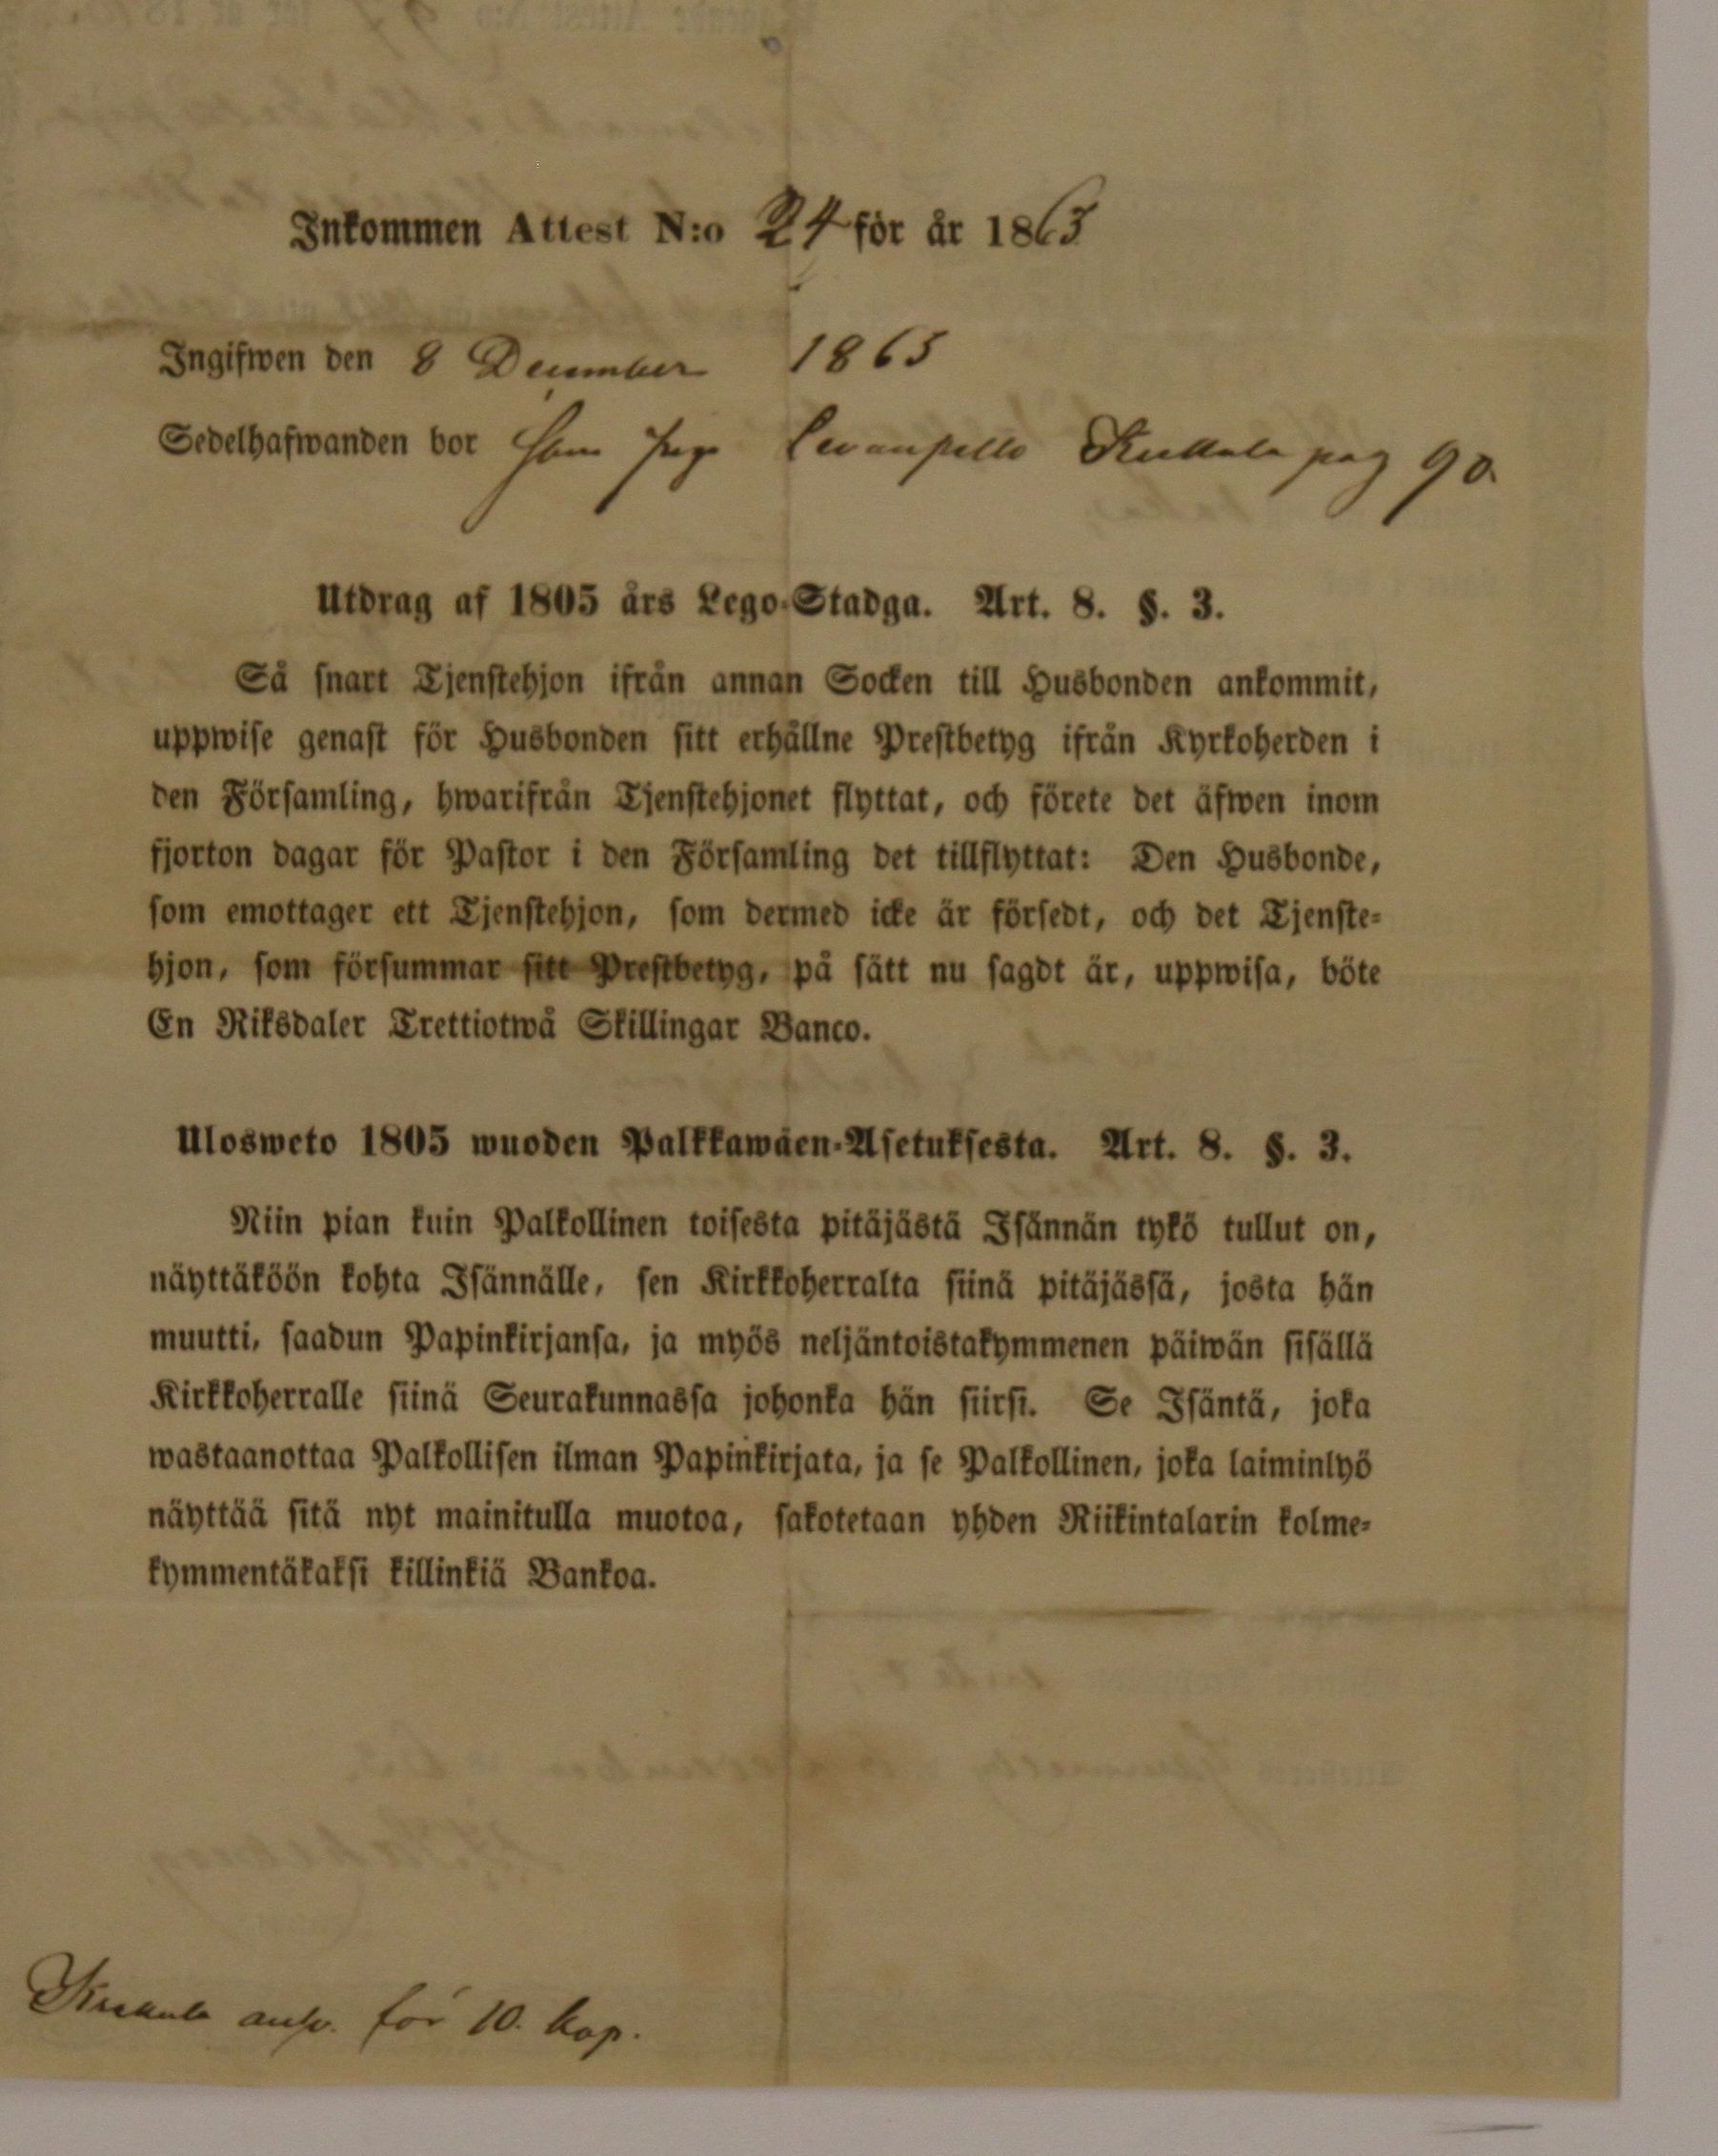 Inkommen Attest N:o 24 för år 1863
Ingifwen den 8 December 1863
Sedelhafwanden bor som Kukkola pag 90.
Utdrag af 1805 års Lego-Stadga. Art. 8. §. 3.
Så snart Tjenstehjon ifrån annan Socken till Husbonden ankommit,
uppwise genast för Husbonden sitt erhållne Prestbetyg ifrån Kyrkoherden i
den Församling, hwarifrån Tjenstehjonet flyttat, och förete det äfwen inom
fjorton dagar för Pastor i den Församling det tillflyttat: Den Husbonde,
som emottager ett Tjenstehjon, som dermed icke är försedt, och det Tjenste-
hjon, som försummar sitt Prestbetyg, på sätt nu sagdt är, uppwisa, böte
En Riksdaler Trettiotwå Skillingar Banco.
Ulosweto 1805 wuoden Palkkawäen-Asetuksesta. Art. 8. §. 3.
Niin pian kuin Palkollinen toisesta pitäjästä Isännän tykö tullut on,
näyttäköön kohta Isännälle, sen Kirkkoherralta siinä pitäjässä, josta hän
muutti, saadun Papinkirjansa, ja myös neljäntoistakymmenen päiwän sisällä
Kirkkoherralle siinä Seurakunnassa johonka hän siirsi. Se Isäntä, joka
wastaanottaa Palkollisen ilman Papinkirjata, ja se Palkollinen, joka laiminlyö
näyttää sitä nyt mainitulla muotoa, sakotetaan yhden Riikintalarin kolme-
kymmentäkaksi killinkiä Bankoa.
answ. för 10. kop.